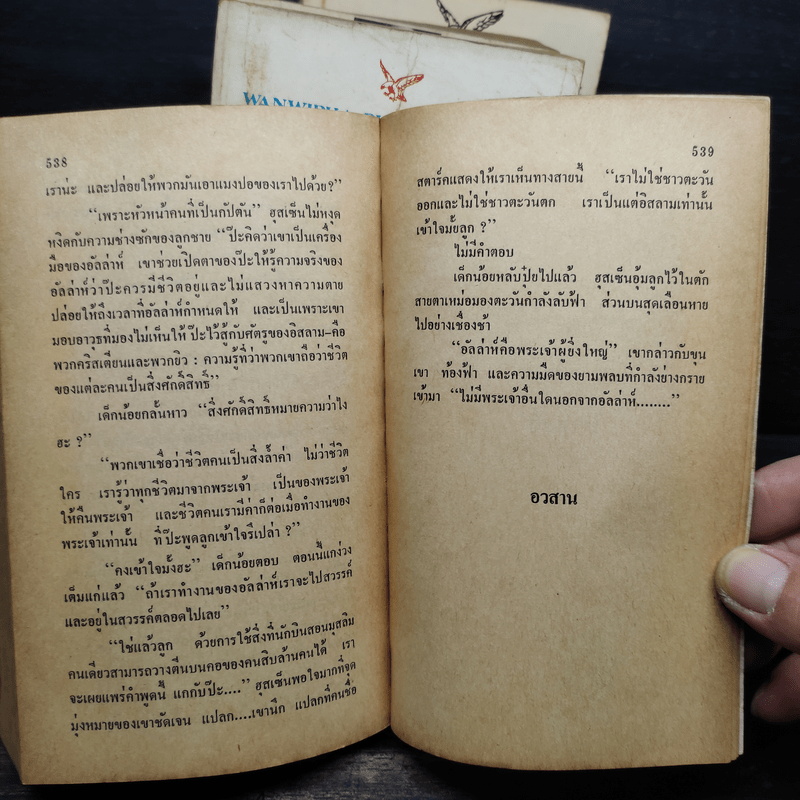 WANWIPHA
538
เราน่ะ และปล่อยให้พวกมันเอาแมงปอของเราไปด้วย?”
“เพราะหัวหน้าคนที่เป็นกัปตัน” ฮุสเซ็นไม่หงุด
หงิดกับความช่างซักของลูกชาย “ป๊ะคิดว่าเขาเป็นเครื่อง
มือของอัลล่าห์ เขาช่วยเปิดตาของป๊ะให้รู้ความจริงของ
อัลล่าห์ว่าป๊ะควรมีชีวิตอยู่และไม่แสวงหาความตาย
ปล่อยให้ถึงเวลาที่อัลล่าห์กำหนดให้ และเป็นเพราะเขา
มอบอาวุธที่มองไม่เห็นให้ ป๊ะไว้สู้กับศัตรูของอิสลาม–คือ
พวกคริสเตียนและพวกยิว : ความรู้ที่ว่าพวกเขาถือว่าชีวิต
ของแต่ละคนเป็นสิ่งศักดิ์สิทธิ์”
เด็กน้อยกลั้นหาว “สิ่งศักดิ์สิทธิ์หมายความว่าไง
ฮะ ?”
“พวกเขาเชื่อว่าชีวิตคนเป็นสิ่งล้ำค่า ไม่ว่าชีวิต
ใคร เรารู้ว่าทุกชีวิตมาจากพระเจ้า เป็นของพระเจ้า
ให้คืนพระเจ้า และชีวิตคนเรามีค่าก็ต่อเมื่อทำงานของ
พระเจ้าเท่านั้น ที่ป๊ะพูดลูกเข้าใจรึเปล่า ?”
“คงเข้าใจมั้งฮะ” เด็กน้อยตอบ ตอนนี้แกง่วง
เต็มแก่แล้ว “ถ้าเราทำงานของอัลล่าห์เราจะไปสวรรค์
และอยู่ในสวรรค์ตลอดไปเลย”
“ใช่แล้วลูก ด้วยการใช้สิ่งที่นักบินสอนมุสลิม
คนเดียวสามารถวางตีนบนคอของคนสิบล้านคนได้ เรา
จะเผยแพร่คำพูดนี้ แกกับป๊ะ....” ฮุสเซ็นพอใจมากที่จุด
มุ่งหมายของเขาชัดเจน แปลก....เขานึก แปลกที่คนชื่อ
539
สตาร์คแสดงให้เราเห็นทางสายนี้ “เราไม่ใช่ชาวตะวัน
ออกและไม่ใช่ชาวตะวันตก เราเป็นแต่อิสลามเท่านั้น
เข้าใจมั้ยลูก ?”
ไม่มีคำตอบ
เด็กน้อยหลับปุ๋ยไปแล้ว ฮุสเซ็นอุ้มลูกไว้ในตัก
สายตาเหม่อมองตะวันกำลังลับฟ้า ส่วนบนสุดเลือนหาย
ไปอย่างเชื่องช้า
“อัลล่าห์คือพระเจ้าผู้ยิ่งใหญ่” เขากล่าวกับขุน
เขา ท้องฟ้า และความมืดของยามพลบที่กำลังย่างกราย
เข้ามา “ไม่มีพระเจ้าอื่นใดนอกจากอัลล่าห์........”
อวสาน